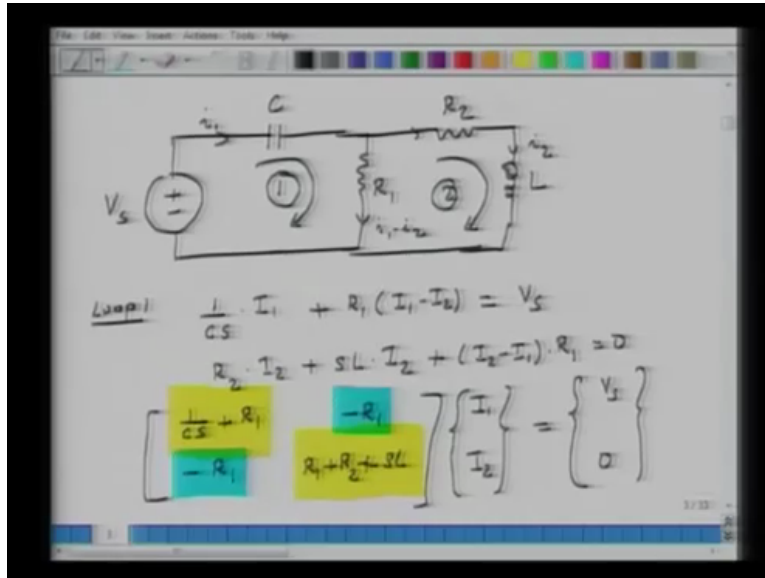 File Edit View Insert Actions Tools Help
i₁ C R₂
i₂
V_S + − 1 R₁ 2 L
i₁-i₂
Loop 1 1/CS · I₁ + R₁ (I₁-I₂) = V_S
R₂ · I₂ + SL · I₂ + (I₂-I₁) · R₁ = 0
[ 1/CS + R₁ -R₁ ] { I₁ } = { V_S }
[ -R₁ R₁+R₂+SL ] { I₂ } { 0 }